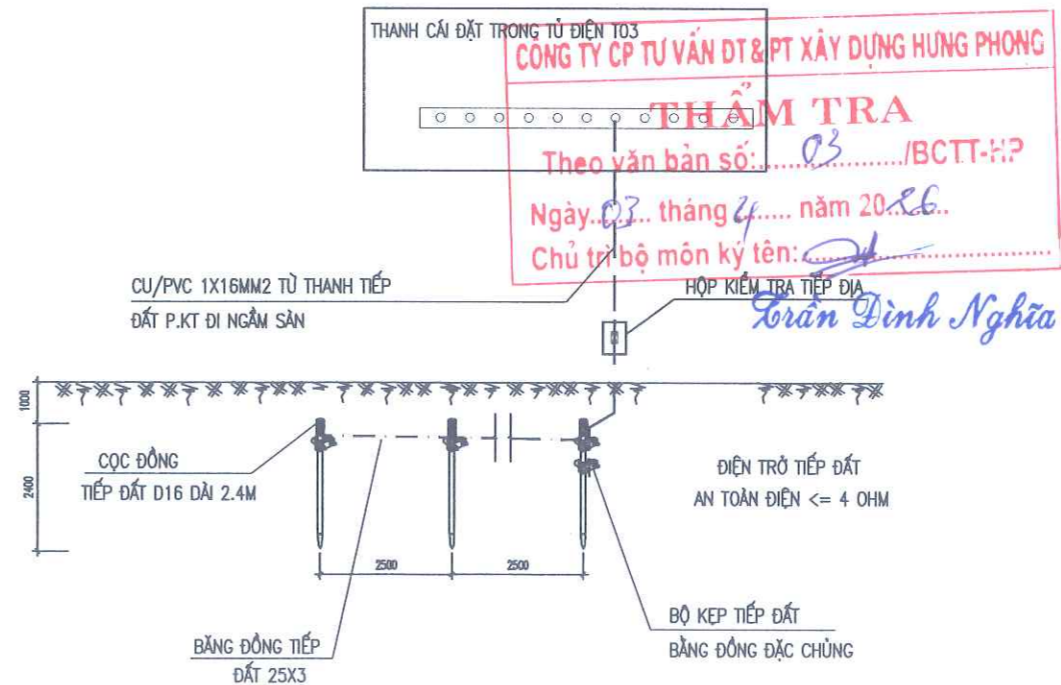 THANH CÁI ĐẶT TRONG TỦ ĐIỆN T03
CÔNG TY CP TƯ VẤN ĐT & PT XÂY DỰNG HƯNG PHONG
THẨM TRA
Theo văn bản số:.....03............/BCTT-HP
Ngày..03... tháng 4...... năm 20.26.....
Chủ trì bộ môn ký tên:
Trần Đình Nghĩa
CU/PVC 1X16MM2 TỪ THANH TIẾP
ĐẤT P.KT ĐI NGẦM SÀN
HỘP KIỂM TRA TIẾP ĐỊA
1000
2400
CỌC ĐỒNG
TIẾP ĐẤT D16 DÀI 2.4M
ĐIỆN TRỞ TIẾP ĐẤT
AN TOÀN ĐIỆN <= 4 OHM
2500
2500
BĂNG ĐỒNG TIẾP
ĐẤT 25X3
BỘ KẸP TIẾP ĐẤT
BẰNG ĐỒNG ĐẶC CHỦNG